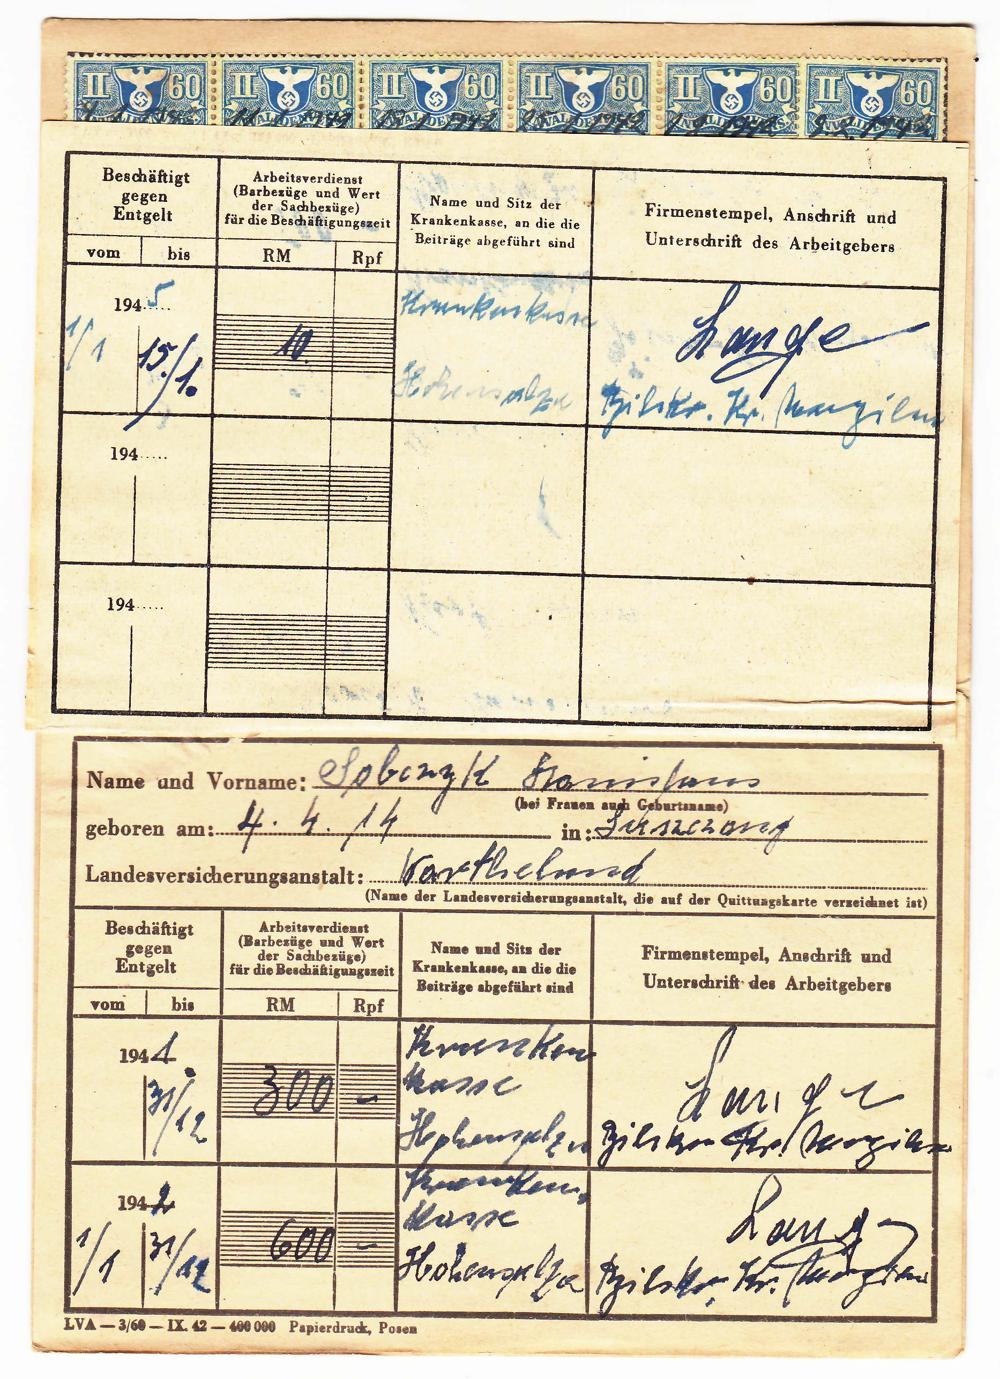 II 60 II 60 II 60 II 60 II 60 II 60
Beschäftigt
gegen
Entgelt
vom bis
Arbeitsverdienst
(Barbezüge und Wert
der Sachbezüge)
für die Beschäftigungszeit
RM Rpf
Name und Sitz der
Krankenkasse, an die die
Beiträge abgeführt sind
Firmenstempel, Anschrift und
Unterschrift des Arbeitgebers
1945
1/1 15./1.
10.
Krankenkasse
Hohensalza
Lange
194.....
194.....
Name und Vorname: Sobczyk Stanislaus
(bei Frauen auch Geburtsname)
geboren am: 4. 4. 14 in:
Landesversicherungsanstalt: Wartheland
(Name der Landesversicherungsanstalt, die auf der Quittungskarte verzeichnet ist)
Beschäftigt
gegen
Entgelt
vom bis
Arbeitsverdienst
(Barbezüge und Wert
der Sachbezüge)
für die Beschäftigungszeit
RM Rpf
Name und Sitz der
Krankenkasse, an die die
Beiträge abgeführt sind
Firmenstempel, Anschrift und
Unterschrift des Arbeitgebers
1941.
31/12
300 –
Kranken
kasse
Hohensalza
Lange
1942
1/1 31/12
600 –
Kranken-
kasse
Hohensalza
Lange
LVA — 3/60 — IX. 42 — 400 000 Papierdruck, Posen